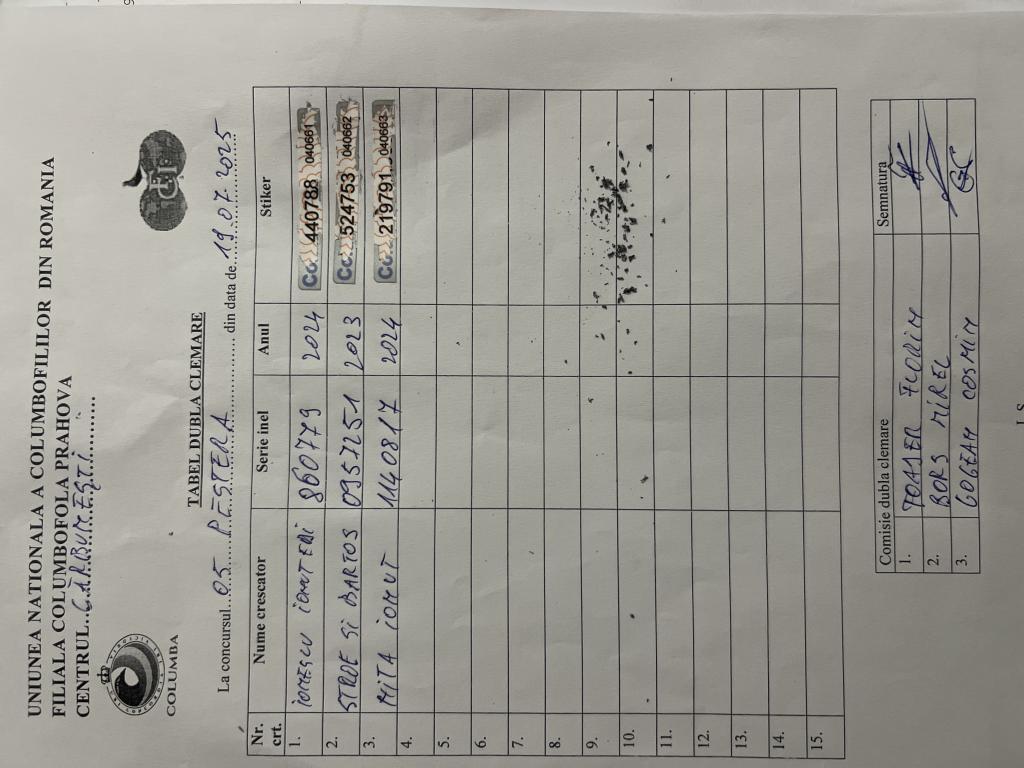 UNIUNEA NATIONALA A COLUMBOFILILOR DIN ROMANIA
FILIALA COLUMBOFOLA PRAHOVA
CENTRUL..CĂRBUNEŞTI..........
COLUMBA
TABEL DUBLA CLEMARE
La concursul..05 PESTERA.......... din data de..19.07.2025
Nr. crt. Nume crescator Serie inel Anul Stiker
1. 860779 2024 440788 040661
2. STROE SI BARTOS 0957251 2023 524753 040662
3. MITA IONUT 1140817 2024 219791 040663
4.
5.
6.
7.
8.
9.
10.
11.
12.
13.
14.
15.
Comisie dubla clemare Semnatura
1.
2. BORS MIREL
3. COSMIN GC